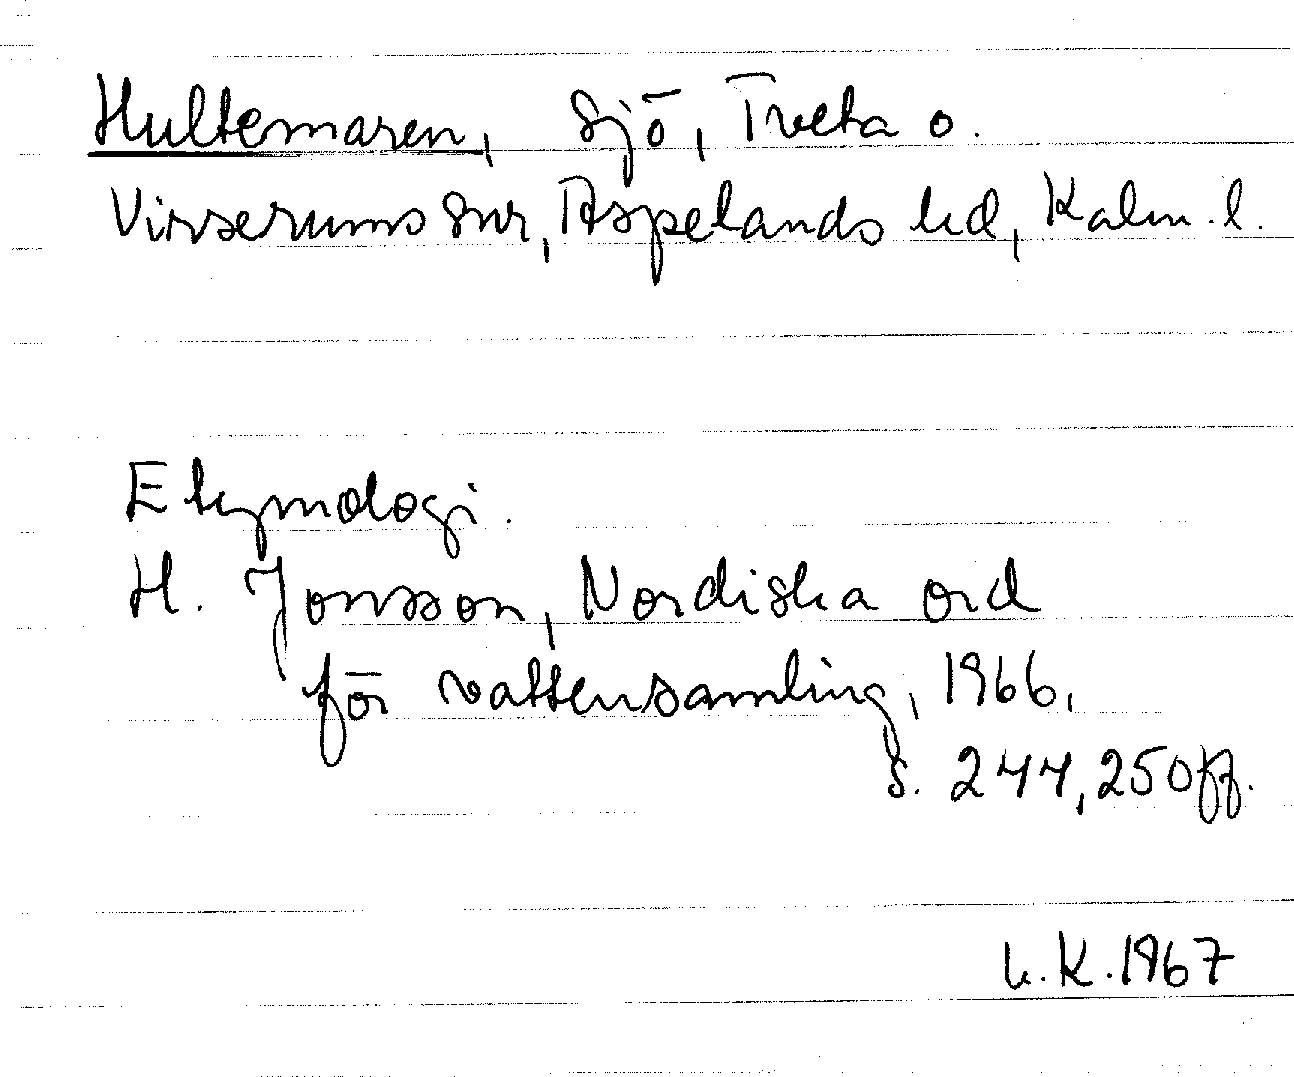 Hultemaren, sjö, Tveta o.
Virserums snr, Aspelands hd, Kalm. l.
Etymologi.
H. Jonsson, Nordiska ord
för vattensamling, 1966,
s. 244, 250 ff.
L.K. 1967